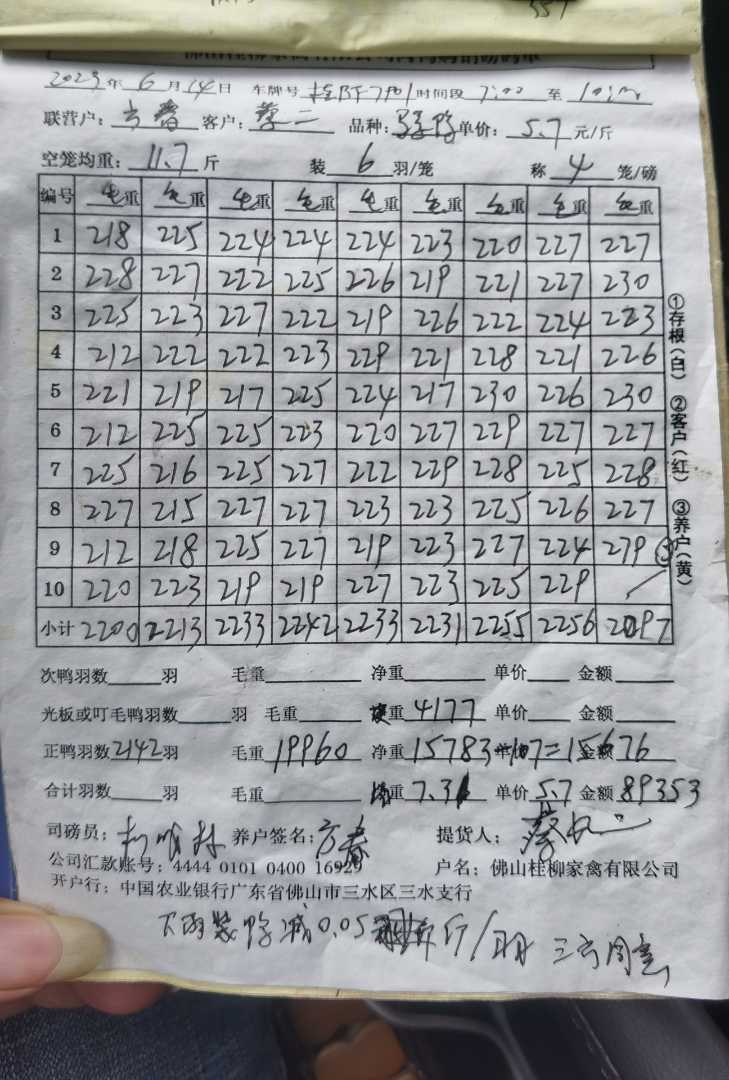 2023年 6月14日 车牌号 时间段 7:00 至
联营户： 客户：蔡二 品种： 单价：5.7元/斤
空笼均重：11.7斤 装6羽/笼 称4笼/磅
编号 毛重 毛重 毛重 毛重 毛重 毛重 毛重 毛重 毛重
1 218 225 224 224 224 223 220 227 227
2 228 227 222 225 226 219 221 227 230
3 225 223 227 222 219 226 222 224 223
4 212 222 222 223 229 221 228 221 226
5 221 219 217 225 224 217 230 226 230
6 212 225 225 223 220 227 229 227 227
7 225 216 225 227 222 229 228 225 228
8 227 215 227 227 223 223 225 226 227
9 212 218 225 227 219 223 227 224 279
10 220 223 219 219 227 223 225 229
小计 2200 2213 2233 2242 2233 2231 2255 2256 2097
①存根（白） ②客户（红） ③养户（黄）
次鸭羽数 羽 毛重 净重 单价 金额
光板或叮毛鸭羽数 羽 毛重 重4177 单价 金额
正鸭羽数2142羽 毛重19960 净重15783-107=15676
合计羽数 羽 毛重 重7.31 单价5.7 金额89353
司磅员： 养户签名： 提货人：
公司汇款账号：4444 0101 0400 16929 户名：佛山桂柳家禽有限公司
开户行：中国农业银行广东省佛山市三水区三水支行
下雨装鸭减0.05斤/羽 三方同意